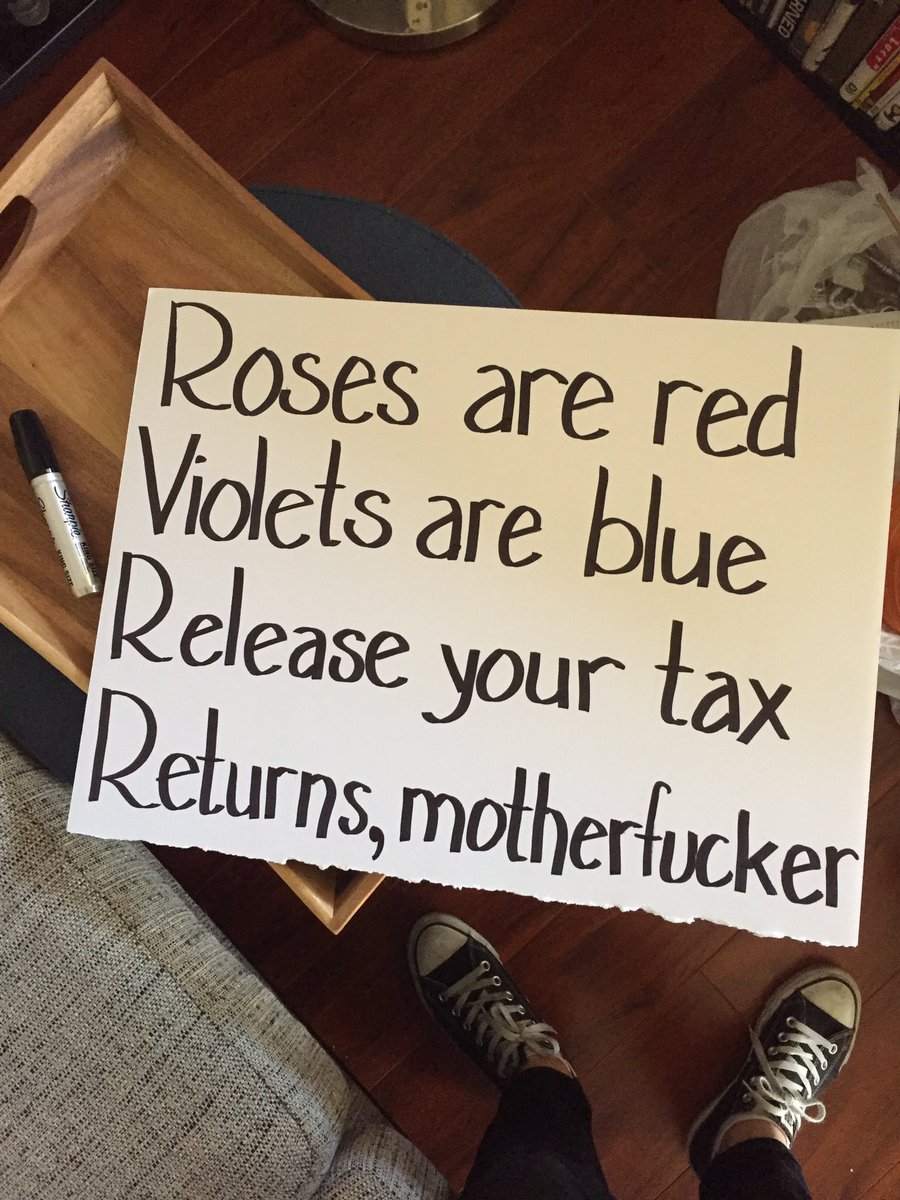 Roses are red
Violets are blue
Release your tax
Returns, motherfucker
Sharpie